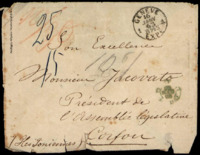 GENÈVE
25
Son Excellence
Monsieur Jacovato
Président de
l'Assemblée législative
Corfou
(Iles Ioniennes)